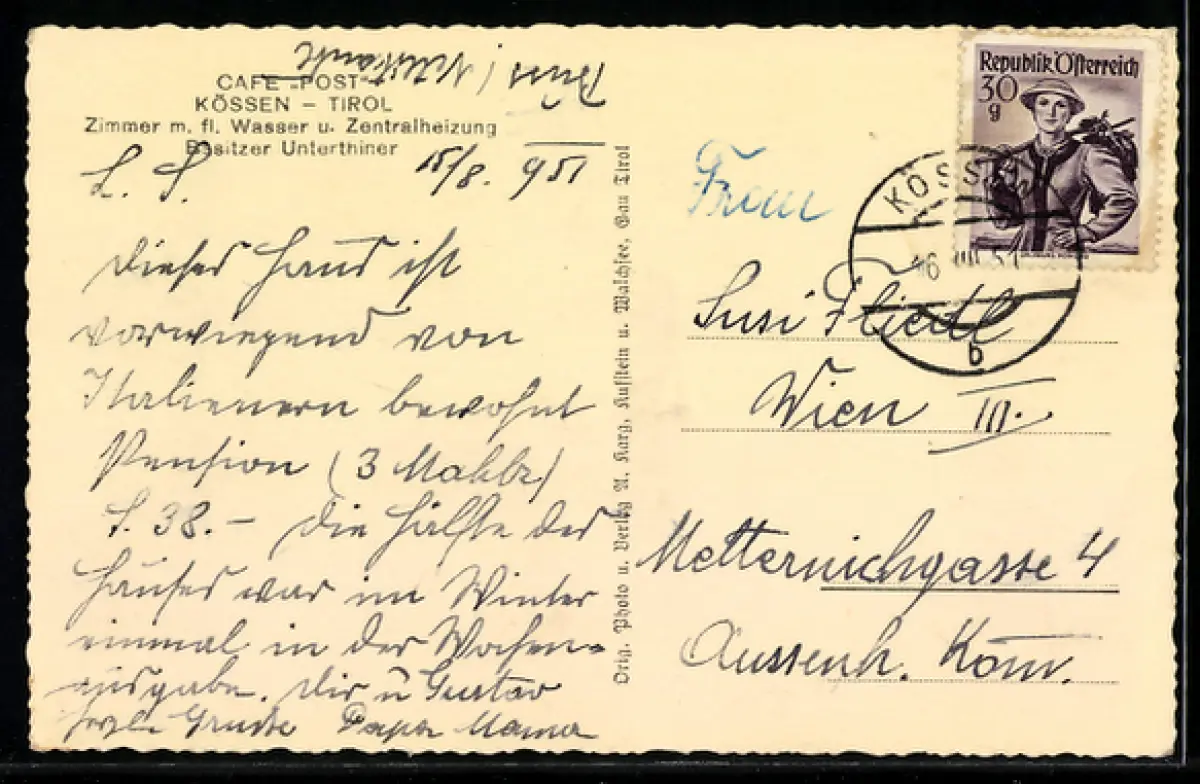 CAFE „POST"
KÖSSEN – TIROL
Zimmer m. fl. Wasser u. Zentralheizung
Besitzer Unterthiner
L. S. 15/8. 951
Dieses Haus ist
vorwiegend von
Italienern bewohnt
Pension (3 Mahlz)
S. 38.– Die Hälfte des
Hauses war im Winter
einmal in der Wochen-
ausgabe. Dir u Gustav
herzl. Grüsse Papa Mama
Orig. Photo u. Verlag A. Karg, Kufstein u. Walchsee, Gau Tirol
Republik Österreich
30
g
KÖSS
16. VIII. 51
b
Frau
Susi Fliedl
Wien III.
Metternichgasse 4
Aussenh. Kom.